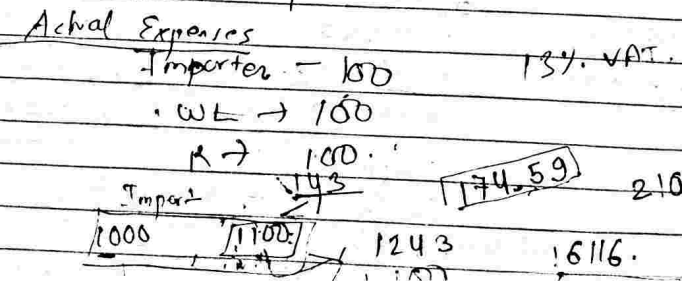 Actual Expenses
Importer - 100 13% VAT.
. WL → 100
R → 100.
143
Import 174.59 210
1000 1100 1243 16116.